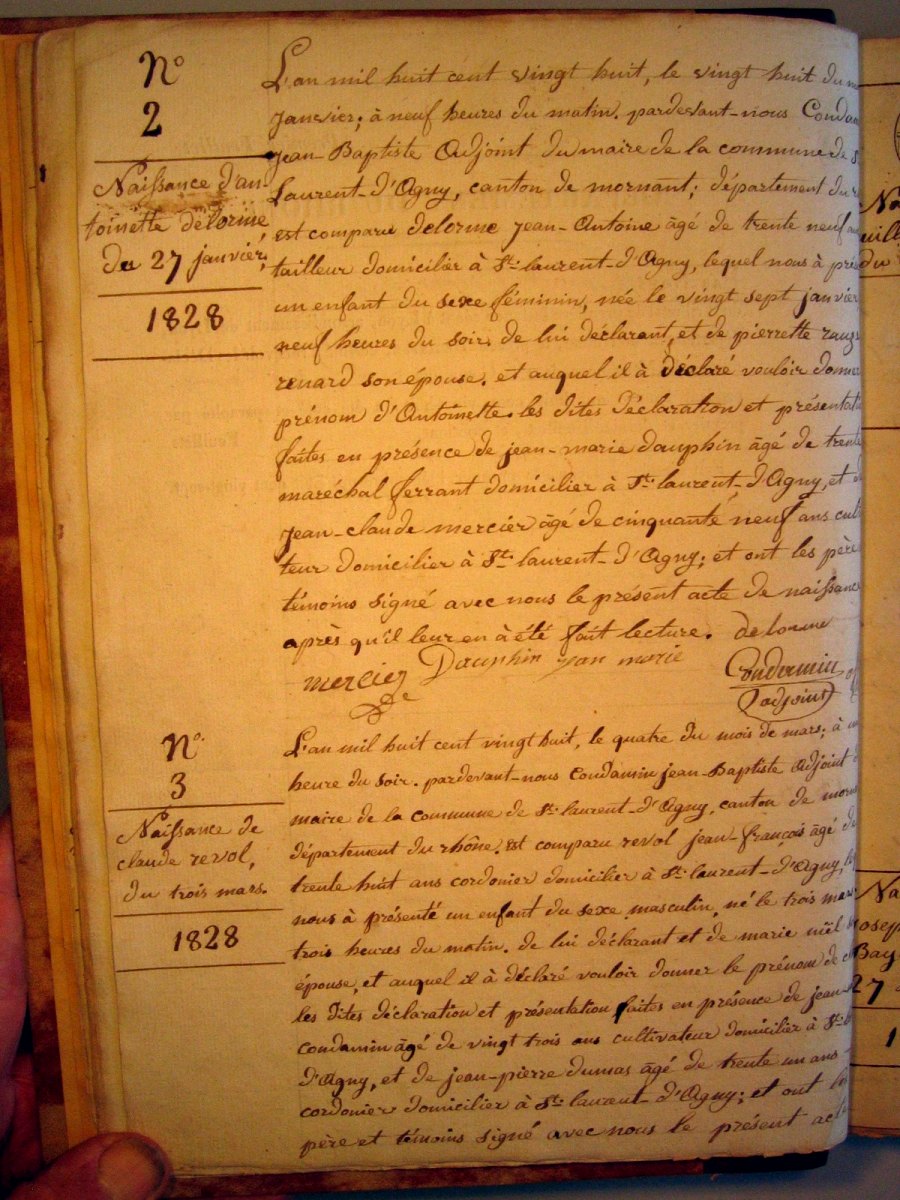 N°
2
Naissance d'an-
toinette délorme
du 27 janvier,
1828
L'an mil huit cent vingt huit, le vingt huit du
janvier; à neuf heures du matin. pardevant-nous Conda
jean-Baptiste Adjoint du maire de la commune de S
Laurent-d'Agny, canton de mornant; département du
est comparu delorme jean-Antoine âgé de trente neuf
tailleur domicilier à St. laurent-d'Agny, lequel nous à pré
un enfant du sexe féminin, née le vingt sept janvier
neuf heures du soir, de lui déclarant, et de pierrette
renard son épouse. et auquel il à déclaré vouloir donner
prénom d'Antoinette. les dites déclaration et présentati
faites en présence de jean-marie dauphin âgé de trente
maréchal ferrant domicilier à St. laurent-d'Agny, et d
jean-claude mercier âgé de cinquante neuf ans cul
teur domicilier à St. laurent-d'Agny; et ont les père
témoins signé avec nous le présent acte de naissance
après qu'il leur en à été fait lecture. delorme
mercier Dauphin jan marie Condamin
adjoint
N°
3
Naissance de
claude revol,
du trois mars.
1828
L'an mil huit cent vingt huit, le quatre du mois de mars; à u
heure du soir. pardevant-nous Condamin jean-Baptiste Adjoint d
maire de la commune de St. laurent-d'Agny, canton de morn
département du rhône. est comparu revol jean-françois âgé de
trente huit ans cordonier domicilier à St. laurent-d'Agny, le
nous à présenté un enfant du sexe masculin, né le trois mars
trois heures du matin. de lui déclarant et de marie
épouse, et auquel il à déclaré vouloir donner le prénom de c
les dites déclaration et présentation faites en présence de jean
condamin âgé de vingt trois ans cultivateur domicilier à St.
d'Agny, et de jean-pierre dumas âgé de trente un ans
cordonier domicilier à St. laurent-d'Agny; et ont les
père et témoins signé avec nous le présent act
Na
uille
du
Na
osep
Bay
27
1